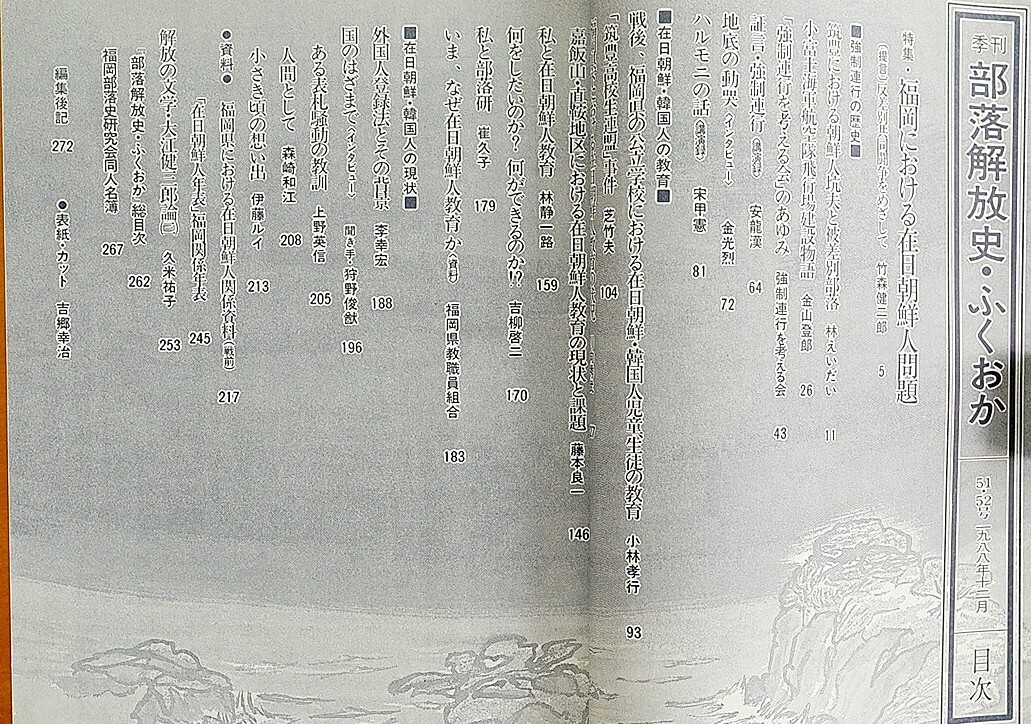 季刊 部落解放史・ふくおか 51・52号 一九八八年十二月 目次
特集・「福岡における在日朝鮮人問題」
〔提言〕反差別共同闘争をめざして 竹森健二郎 5
■強制連行の歴史■
筑豊における朝鮮人坑夫と被差別部落 林えいだい 11
小富士海軍航空隊飛行場建設物語 金山登郎 26
「強制連行を考える会」のあゆみ 強制連行を考える会 43
証言・強制連行〈講演録〉 安龍漢 64
地底の動哭〈インタビュー〉 金光烈 72
ハルモニの話〈講演録〉 宋甲憲 81
■在日朝鮮・韓国人の教育■
戦後、福岡県の公立学校における在日朝鮮・韓国人児童生徒の教育 小林孝行 93
「筑豊高校生連盟」事件 芝竹夫 104
嘉飯山・直鞍地区における在日朝鮮人教育の現状と課題 藤本良一 146
私と在日朝鮮人教育 林静一路 159
何をしたいのか?何ができるのか!? 吉柳啓二 170
私と部落研 崔久子 179
いま、なぜ在日朝鮮人教育か〈資料〉 福岡県教職員組合 183
■在日朝鮮・韓国人の現状■
外国人登録法とその背景 李幸宏 188
国のはざまで〈インタビュー〉 聞き手・狩野俊猷 196
ある表札騒動の教訓 上野英信 205
人間として 森崎和江 208
小さき頃の想い出 伊藤ルイ 213
●資料●
福岡県における在日朝鮮人関係資料(戦前) 217
「在日朝鮮人年表」福岡関係年表 245
解放の文学・大江健三郎論㈡ 久米祐子 253
「部落解放史・ふくおか」総目次 262
福岡部落史研究会同人名簿 267
編集後記 272
●表紙・カット 吉郷幸治